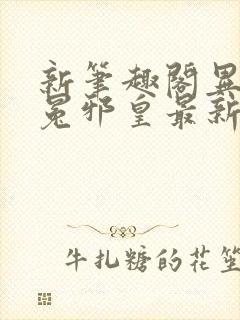 新笔趣阁异
冕邪皇最新
牛扎糖的花笙